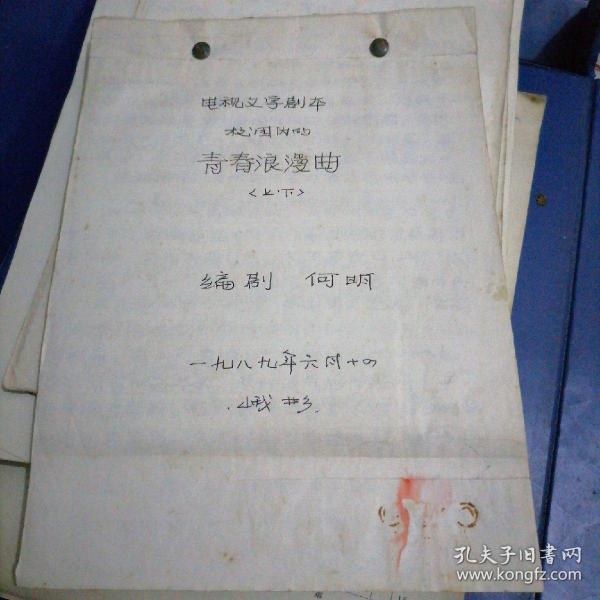 电视文学剧本
校园内的
青春浪漫曲
<上.下>
编剧 何明
一九八九年六月十四
孔夫子旧书网
www.kongfz.com